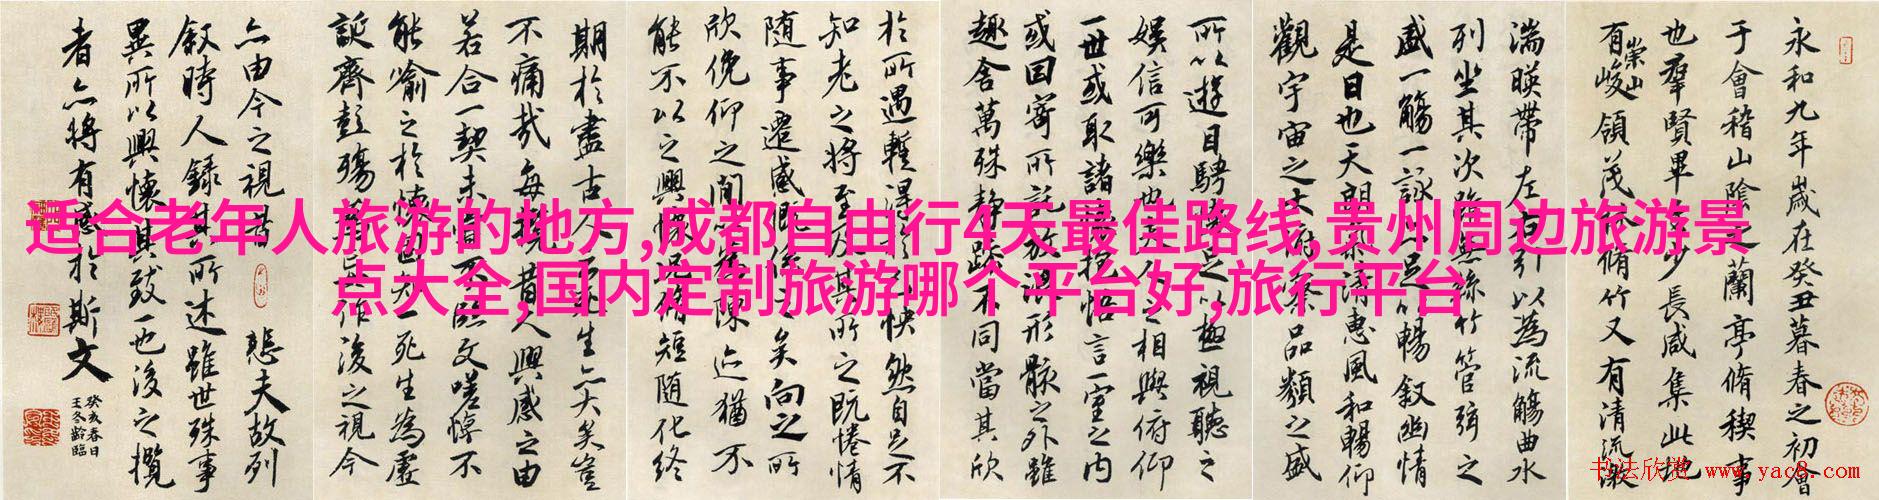 适合老年人旅游的地方,成都自由行4天最佳路线,贵州周边旅游景
点大全,国内定制旅游哪个平台好,旅行平台
永和九年歲在癸丑暮春之初會
于會稽山陰之蘭亭脩稧事
也羣賢畢至少長咸集此地
有崇山峻領茂林脩竹又有清流激
湍暎帶左右引以為流觴曲水
列坐其次雖無絲竹管弦之
盛一觴一詠亦足以暢敘幽情
是日也天朗氣清惠風和暢仰
觀宇宙之大俯察品類之盛
所以遊目騁懷足以極視聽之
娛信可樂也夫人之相與俯仰
一世或取諸懷抱悟言一室之內
或因寄所託放浪形骸之外雖
趣舍萬殊靜躁不同當其欣
於所遇暫得於己快然自足不
知老之將至及其所之既惓情
隨事遷感慨係之矣向之所
欣俛仰之間以為陳迹猶不
能不以之興懷況脩短隨化終
期於盡古人云死生亦大矣豈
不痛哉每攬昔人興感之由
若合一契未嘗不臨文嗟悼不
能喻之於懷固知一死生為虛
誕齊彭殤為妄作後之視今
亦由今之視昔悲夫故列
敘時人錄其所述雖世殊事
異所以興懷其致一也後之攬
者亦將有感於斯文
癸亥春日
王冬齡臨
书法欣赏 www.yac8.com